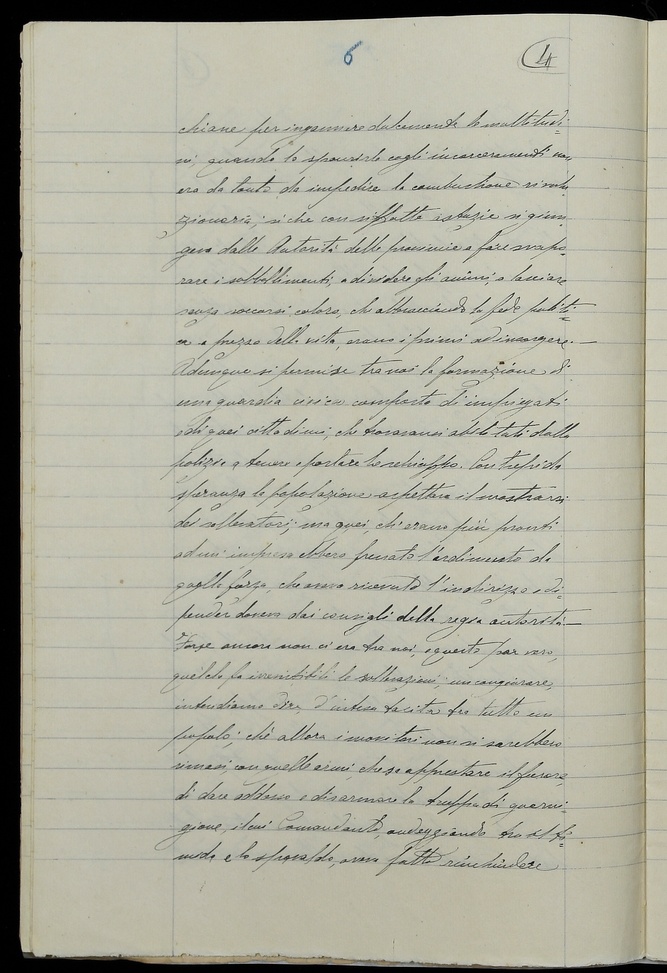 6
4
chiane per ingannare dulcemente le moltitudi=
ni, quando lo spaurirle cogli incarceramenti non
era da tanto da impedire la combustione rivolu
zionaria; sicchè con siffatte astuzie si giun=
geva dalle Autorità delle provincie a fare svapo=
rare i sobbollimenti, a dividere gli animi, a lasciare
senza soccorsi coloro, che abbracciando la fede politi=
ca a prezzo della vita, erano i primi ad insorgere.—
Adunque si permise tra noi la formazione di
una guardia civica composta d'impiegati
e di quei cittadini, che trovavansi abilitati dalla
polizia a tenere e portare lo schioppo. Con trepida
speranza la popolazione aspettava il mostrarsi
dei sollevatori; ma quei, ch'erano più pronti
ad un'impresa ebbero frenato l'ardimento da
quella forza, che aveva ricevuto l'indirizzo e di=
pender doveva dai consigli della regia autorità—
Forse ancora non ci era tra noi, e questo par vero,
quel che fa irresistibili le sollevazioni, un congiurare,
intendiamo dire, d'intesa tacita tra tutto un
popolo; chè allora i monitori non si sarebbero
rimasi, con quelle armi che sa apprestare il furore,
di dare addosso e disarmare la truppa di guarni=
gione, il cui Comandante, ondeggiando tra il ti=
mido e lo spavaldo, aveva fatto rinchiudere